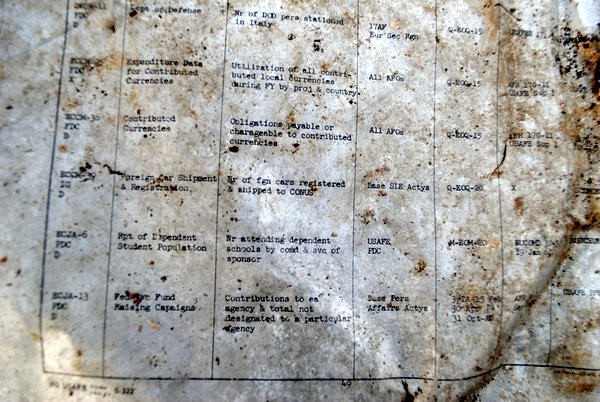 Dept of Defense
Nr of DOD pers stationed
in Italy
17AF
Eur Sec Rgn
Q-EOQ-15
FDC
D
Expenditure Data
for Contributed
Currencies
Utilization of all contri-
buted local currencies
during FY by proj & country
All AFOs
Q-EOQ-15
AFR 170-11
USAFE Sup 1
FDC
X
ECCM-36
FDC
D
Contributed
Currencies
Obligations payable or
charageable to contributed
currencies
All AFOs
Q-EOQ-15
AFR 170-11
USAFE Sup 1
ECCM-39
IG
D
Foreign Car Shipment
& Registration
Nr of fgn cars registered
& shipped to CONUS
Base SIE Actys
Q-EOQ-20
X
ECJA-6
FDC
D
Rpt of Dependent
Student Population
Nr attending dependent
schools by comd & svc of
sponsor
USAFE
FDC
M-EOM-20
EUCOMD
19 Jan
ECJA-13
FDC
D
Fed Svc Fund
Raising Capaigns
Contributions to ea
agency & total not
designated to a particular
agency
Base Pers
Affairs Actys
Feb
30 Apr
31 Oct
USAFE
49
HQ USAFE Form 0-322